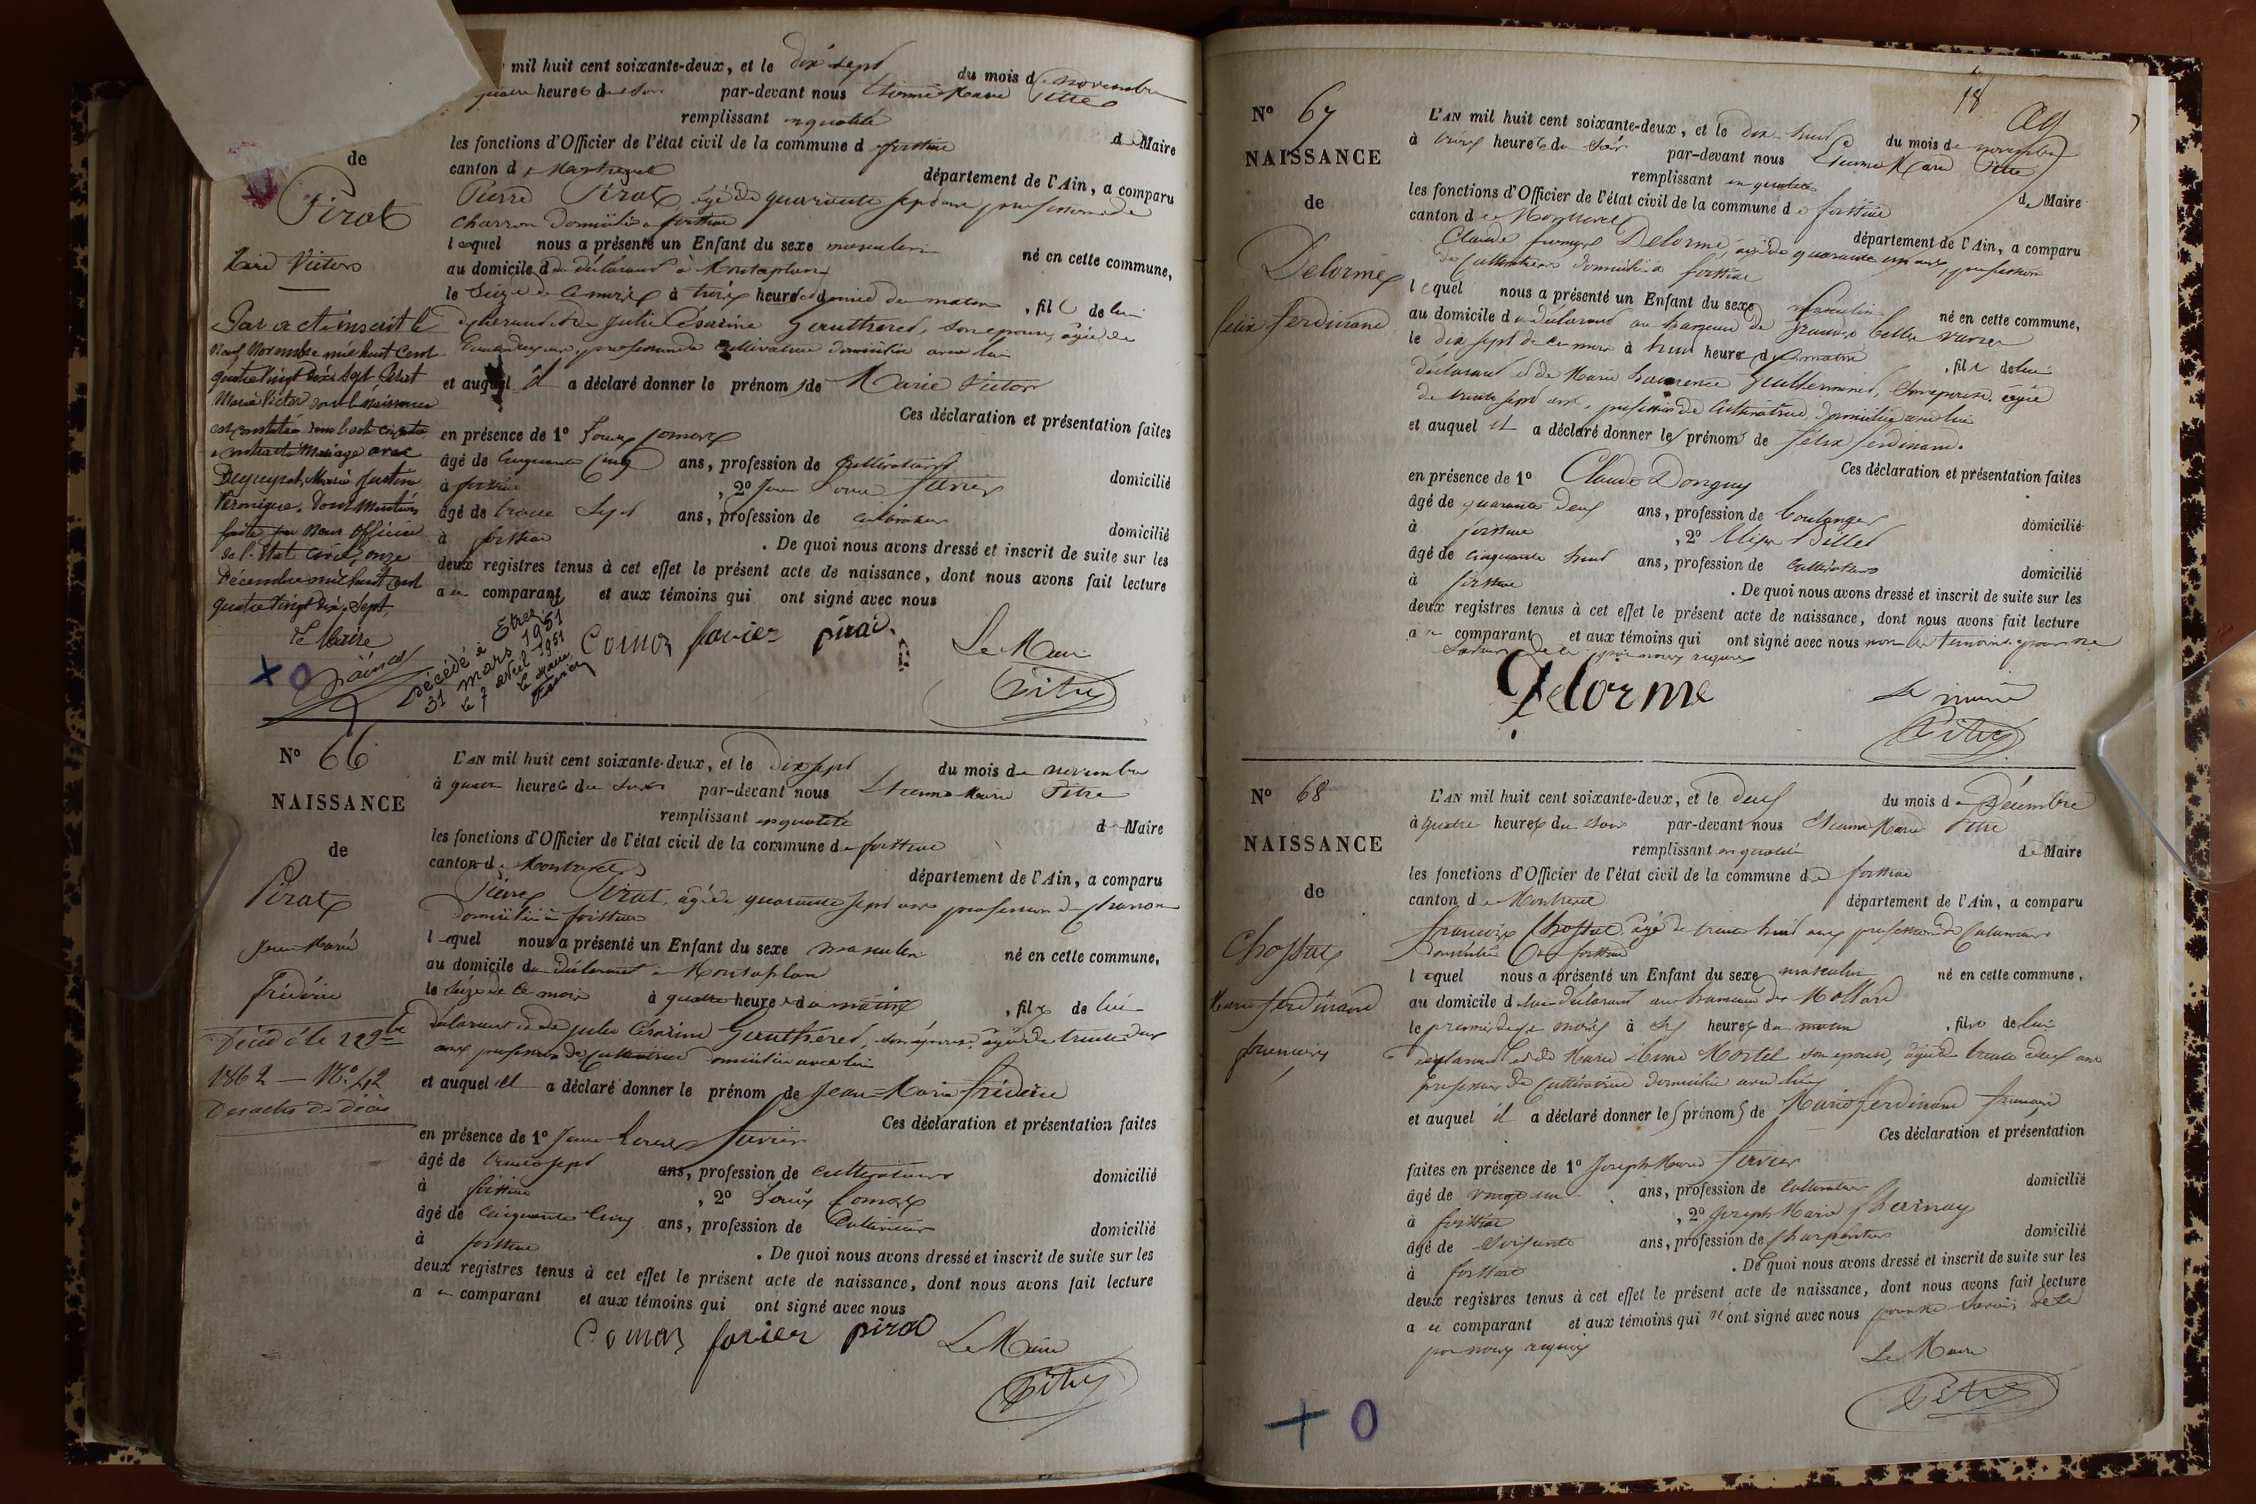 mil huit cent soixante-deux, et le dix sept du mois de novembre
quatre heures du soir par-devant nous Etienne Marie Pitre
remplissant en qualité de Maire
les fonctions d'Officier de l'état civil de la commune d
canton de département de l'Ain, a comparu
Pierre Pirat, âgé de quarante sept ans profession de
charron domicilié à
lequel nous a présenté un Enfant du sexe masculin né en cette commune,
au domicile du déclarant à Montaplan
le Seize de ce mois à trois heures du matin, fils de lui
déclarant et de Julie Césarine Gauthered, son épouse, âgée de
profession de cultivatrice domiciliée avec lui
et auquel il a déclaré donner le prénom de Marie Victor
Ces déclaration et présentation faites
en présence de 1° Louis Comoz
âgé de cinquante cinq ans, profession de cultivateur domicilié
à , 2° Jean Louis Favier
âgé de trente sept ans, profession de cultivateur domicilié
à . De quoi nous avons dressé et inscrit de suite sur les
deux registres tenus à cet effet le présent acte de naissance, dont nous avons fait lecture
au comparant et aux témoins qui ont signé avec nous
Comoz favier pirat
Le Maire
Pitre
de
Pirat
Marie Victor
Par acte inscrit le
neuf Novembre mil huit cent
quatre vingt dix sept Pirat
Marie Victor dont la naissance
est constatée dans l'acte ci-contre
a contracté Mariage avec
Marie Justine
Véronique. Dont Mention
faite par Nous Officier
de l'État civil, onze
Décembre mil huit cent
quatre vingt dix sept
Le Maire
+ 0
Décédé à Etrez
31 mars 1951
le 7 avril 1951
Le Maire
N° 66
NAISSANCE
de
Pirat
Jean Marie
Frédéric
Décédé le 22 9bre
1862 — N° 42
Des actes de décès
L'AN mil huit cent soixante-deux, et le dix sept du mois de novembre
à quatre heures du soir par-devant nous Etienne Marie Pitre
remplissant en qualité de Maire
les fonctions d'Officier de l'état civil de la commune de
canton de département de l'Ain, a comparu
Pierre Pirat, âgé de quarante sept ans profession de charron
domicilié à
lequel nous a présenté un Enfant du sexe masculin né en cette commune,
au domicile du déclarant à Montaplan
le seize de ce mois à quatre heures du matin, fils de lui
déclarant et de Julie Césarine Gauthered, son épouse, âgée de trente deux
ans profession de cultivatrice domiciliée avec lui
et auquel il a déclaré donner le prénom de Jean-Marie Frédéric
Ces déclaration et présentation faites
en présence de 1° Jean Louis Favier
âgé de trente sept ans, profession de cultivateur domicilié
à , 2° Louis Comoz
âgé de cinquante cinq ans, profession de cultivateur domicilié
à . De quoi nous avons dressé et inscrit de suite sur les
deux registres tenus à cet effet le présent acte de naissance, dont nous avons fait lecture
au comparant et aux témoins qui ont signé avec nous
Comoz favier pirat
Le Maire
Pitre
18
N° 67
NAISSANCE
de
Delorme
félix ferdinand
L'AN mil huit cent soixante-deux, et le dix huit du mois de novembre
à trois heures du soir par-devant nous Etienne Marie Pitre
remplissant en qualité de Maire
les fonctions d'Officier de l'état civil de la commune de
canton de département de l'Ain, a comparu
Claude Delorme, âgé de quarante un ans, profession
de Cultivateur domicilié à
lequel nous a présenté un Enfant du sexe masculin né en cette commune,
au domicile du déclarant au hameau de
le dix sept de ce mois à huit heures du matin, fils de lui
déclarant et de Marie Laurence Guillermine, son épouse, âgée
de trente sept ans, profession de Cultivatrice domiciliée avec lui
et auquel il a déclaré donner les prénoms de félix ferdinand.
Ces déclaration et présentation faites
en présence de 1° Claude Donguy
âgé de quarante deux ans, profession de boulanger domicilié
à , 2° Alexis Billet
âgé de cinquante huit ans, profession de cultivateur domicilié
à . De quoi nous avons dressé et inscrit de suite sur les
deux registres tenus à cet effet le présent acte de naissance, dont nous avons fait lecture
au comparant et aux témoins qui ont signé avec nous non les témoins pour ne
savoir de ce par nous requis
Delorme
Le maire
Pitre
N° 68
NAISSANCE
de
Chossat
Marie ferdinand
françois
L'AN mil huit cent soixante-deux, et le deux du mois de Décembre
à quatre heures du soir par-devant nous Etienne Marie Pitre
remplissant en qualité de Maire
les fonctions d'Officier de l'état civil de la commune de
canton de département de l'Ain, a comparu
françois Chossat âgé de trente huit ans profession de Cultivateur
domicilié à
lequel nous a présenté un Enfant du sexe masculin né en cette commune,
au domicile de lui déclarant au hameau de Mollard
le premier de ce mois à six heures du matin, fils de lui
déclarant et de Marie Aimé Mortel son épouse, âgée de trente deux ans
profession de Cultivatrice domiciliée avec lui
et auquel il a déclaré donner les prénoms de Marie ferdinand françois
Ces déclaration et présentation
faites en présence de 1° Joseph Marie favier
âgé de vingt un ans, profession de Cultivateur domicilié
à , 2° Joseph Marie Charnay
âgé de soixante ans, profession de charpentier domicilié
à . De quoi nous avons dressé et inscrit de suite sur les
deux registres tenus à cet effet le présent acte de naissance, dont nous avons fait lecture
au comparant et aux témoins qui n'ont signé avec nous pour ne savoir de ce
par nous requis
Le Maire
Pitre
+ 0